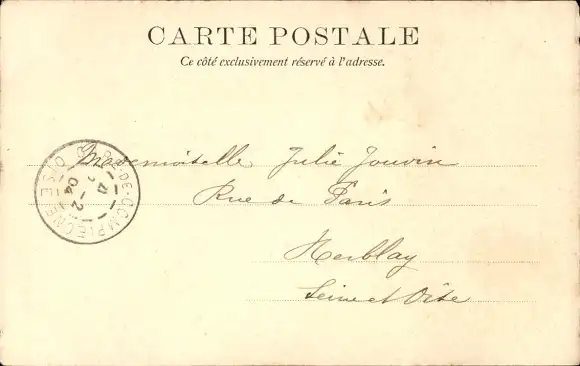 CARTE POSTALE
Ce côté exclusivement réservé à l'adresse.
Mademoiselle Julie Jouvin
Rue de Paris
Herblay
Seine et Oise
DE-COMPIEGNE
OISE
04